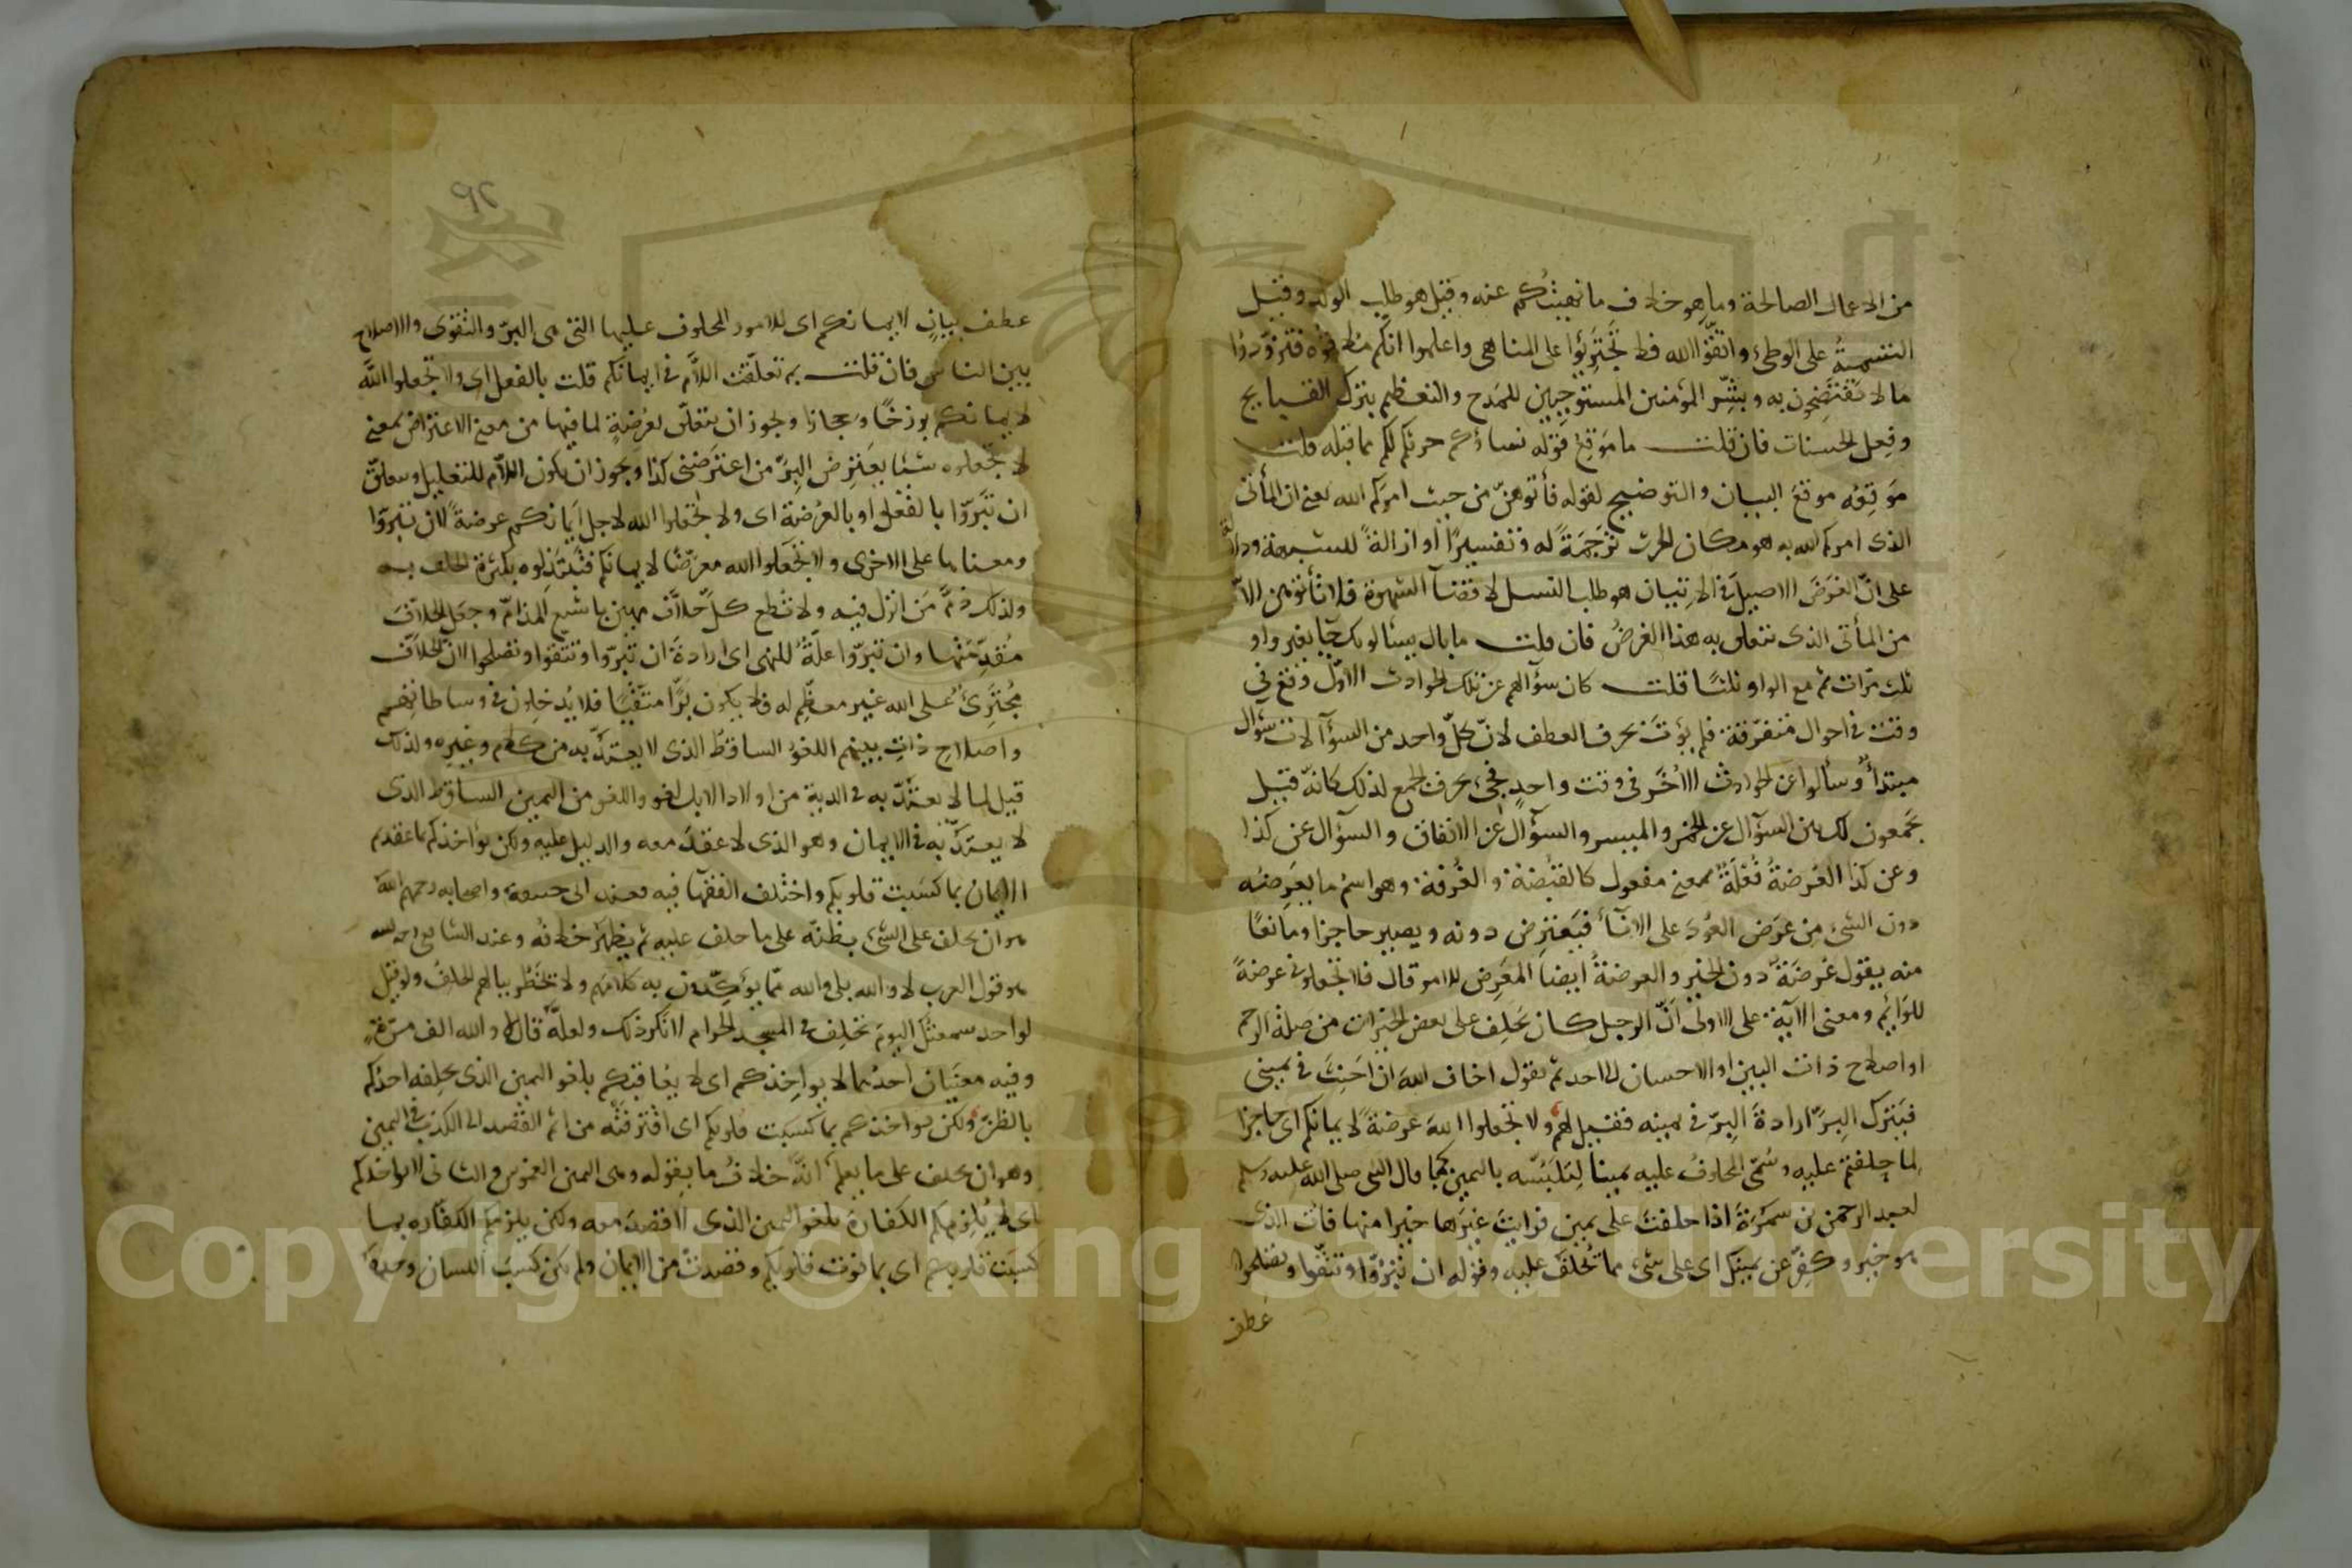 من الاعمال الصالحة وما هو خلاف ما نهيتكم عنه وقيل هو طلب الولد وقيل
التسمية على الوطئ واتقوا الله فلا تجترئوا على المناهى واعلموا انكم ملاقوه فتزودوا
ما لا تفتضحون به وبشر المؤمنين المستوجبين للمدح والتعظيم بترك القبايح
وفعل الحسنات فان قلت ما موقع قوله نساؤكم حرث لكم مما قبله قلت
موقعه موقع البيان والتوضيح لقوله فأتوهن من حيث امركم الله يعنى ان المأتى
الذى امركم الله به هو مكان الحرث ترجمة له وتفسيرا او ازالة للشبهة ودلالة
على ان الغرض الاصيل فى الاتيان هو طلب النسل لا قضآ الشهوة فلا تأتوهن الا
من المأتى الذى يتعلق به هذا الغرض فان قلت ما بال يسئالونك جآ بغير واو
ثلث مرات ثم مع الواو ثلثا قلت كان سؤآلهم عن تلك الحوادث الاول وقع فى
وقت فى احوال متفرقة فلم يؤت بحرف العطف لان كل واحد من السؤآلات سؤال
مبتدأ وسألوا عن الحوادث الاخر فى وقت واحد فجئ بحرف الجمع لذلك كانه قيل
يجمعون لك بين السؤآل عن الخمر والميسر والسؤآل عن الانفاق والسؤال عن كذا
وعن كذا العرضة فعلة بمعنى مفعول كالقبضة والغرفة وهو اسم ما يعرضه
دون الشئ من عرض العود على الانآ فيعترض دونه ويصير حاجزا ومانعا
منه يقول عرضة دون الخير والعرضة ايضا المعرض للامر قال فلا تجعلونى عرضة
للوائم ومعنى الآية على الاولى ان الرجل كان يحلف على بعض الخيرات من صلة الرحم
او اصلاح ذات البين او الاحسان الى احد ثم يقول اخاف الله ان احنث فى يمينى
فيترك البر ارادة البر فى يمينه فقيل لهم ولا تجعلوا الله عرضة لايمانكم اى حاجزا
لما حلفتم عليه وسمى المحلوف عليه يمينا لتلبسه باليمين كما قال النبى صلى الله عليه وسلم
لعبد الرحمن بن سمرة اذا حلفت على يمين فرايت غيرها خيرا منها فائت الذى
هو خير وكفر عن يمينك اى على شئ مما تحلف عليه وقوله ان تبروا وتتقوا وتصلحوا
عطف
عطف بيان لايمانكم اى للامور المحلوف عليها التى هى البر والتقوى والاصلاح
بين الناس فان قلت بم تعلقت اللام فى ايمانكم قلت بالفعل اى ولا تجعلوا الله
لايمانكم برزخا وحجازا ويجوز ان يتعلق بعرضة لما فيها من معنى الاعتراض بمعنى
لا تجعلوه شيئا يعترض البر من اعترضنى كذا ويجوز ان يكون اللام للتعليل ويتعلق
ان تبروا بالفعل او بالعرضة اى ولا تجعلوا الله لاجل ايمانكم عرضة لان تبروا
ومعناها على الاخرى ولا تجعلوا الله معرضا لايمانكم فتبتذلوه بكثرة الحلف به
ولذلك ذم من انزل فيه ولا تطع كل حلاف مهين باشنع المذام وجعل الحلاف
مقدمتها وان تبروا علة للنهى اى ارادة ان تبروا وتتقوا وتصلحوا لان الحلاف
مجترئ على الله غير معظم له فلا يكون برا متقيا فلا يدخلون فى وساطاتهم
واصلاح ذات بينهم اللغو الساقط الذى لا يعتد به من كلام وغيره ولذلك
قيل لما لا يعتد به فى الدية من اولاد الابل لغو واللغو من اليمين الساقط الذى
لا يعتد به فى الايمان وهو الذى لا عقد معه والدليل عليه ولكن يؤاخذكم بما عقدتم
الايمان بما كسبت قلوبكم واختلف الفقهآ فيه فعند ابى حنيفة واصحابه رحمهم الله
هو ان يحلف على الشئ بظنه على ما حلف عليه ثم يظهر خلافه وعند الشافعى رحمه الله
هو قول العرب لا والله بلى والله مما يؤكدون به كلامهم ولا يخطر ببالهم الحلف ولو قيل
لواحد سمعتك اليوم تحلف فى المسجد الحرام لانكر ذلك ولعله قال لا والله الف مرة
وفيه معنيان احدهما لا يواخذكم اى لا يعاقبكم بلغو اليمين الذى يحلفه احدكم
بالظن ولكن يواخذكم بما كسبت قلوبكم اى اقترفته من اثم القصد الى الكذب فى اليمين
وهو ان يحلف على ما يعلم انه خلاف ما يقوله وهى اليمين الغموس والثانى لا يواخذكم
اى لا يلزمكم الكفارة بلغو اليمين الذى لا قصد معه ولكن يلزمكم الكفارة بما
كسبت قلوبكم اى بما نوت قلوبكم وقصدت من الايمان ولم يكن كسب اللسان وحده
Copyright © King Saud University
1957